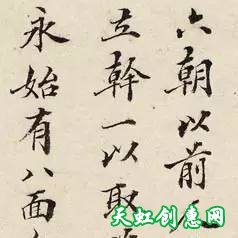 六朝以前
立幹一以取
永始有八面
天虹创意网